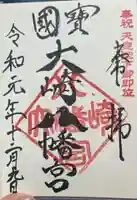 奉祝 天皇陛下御即位
奉拝
國寳
大崎八幡宮
令和元年十二月吉日